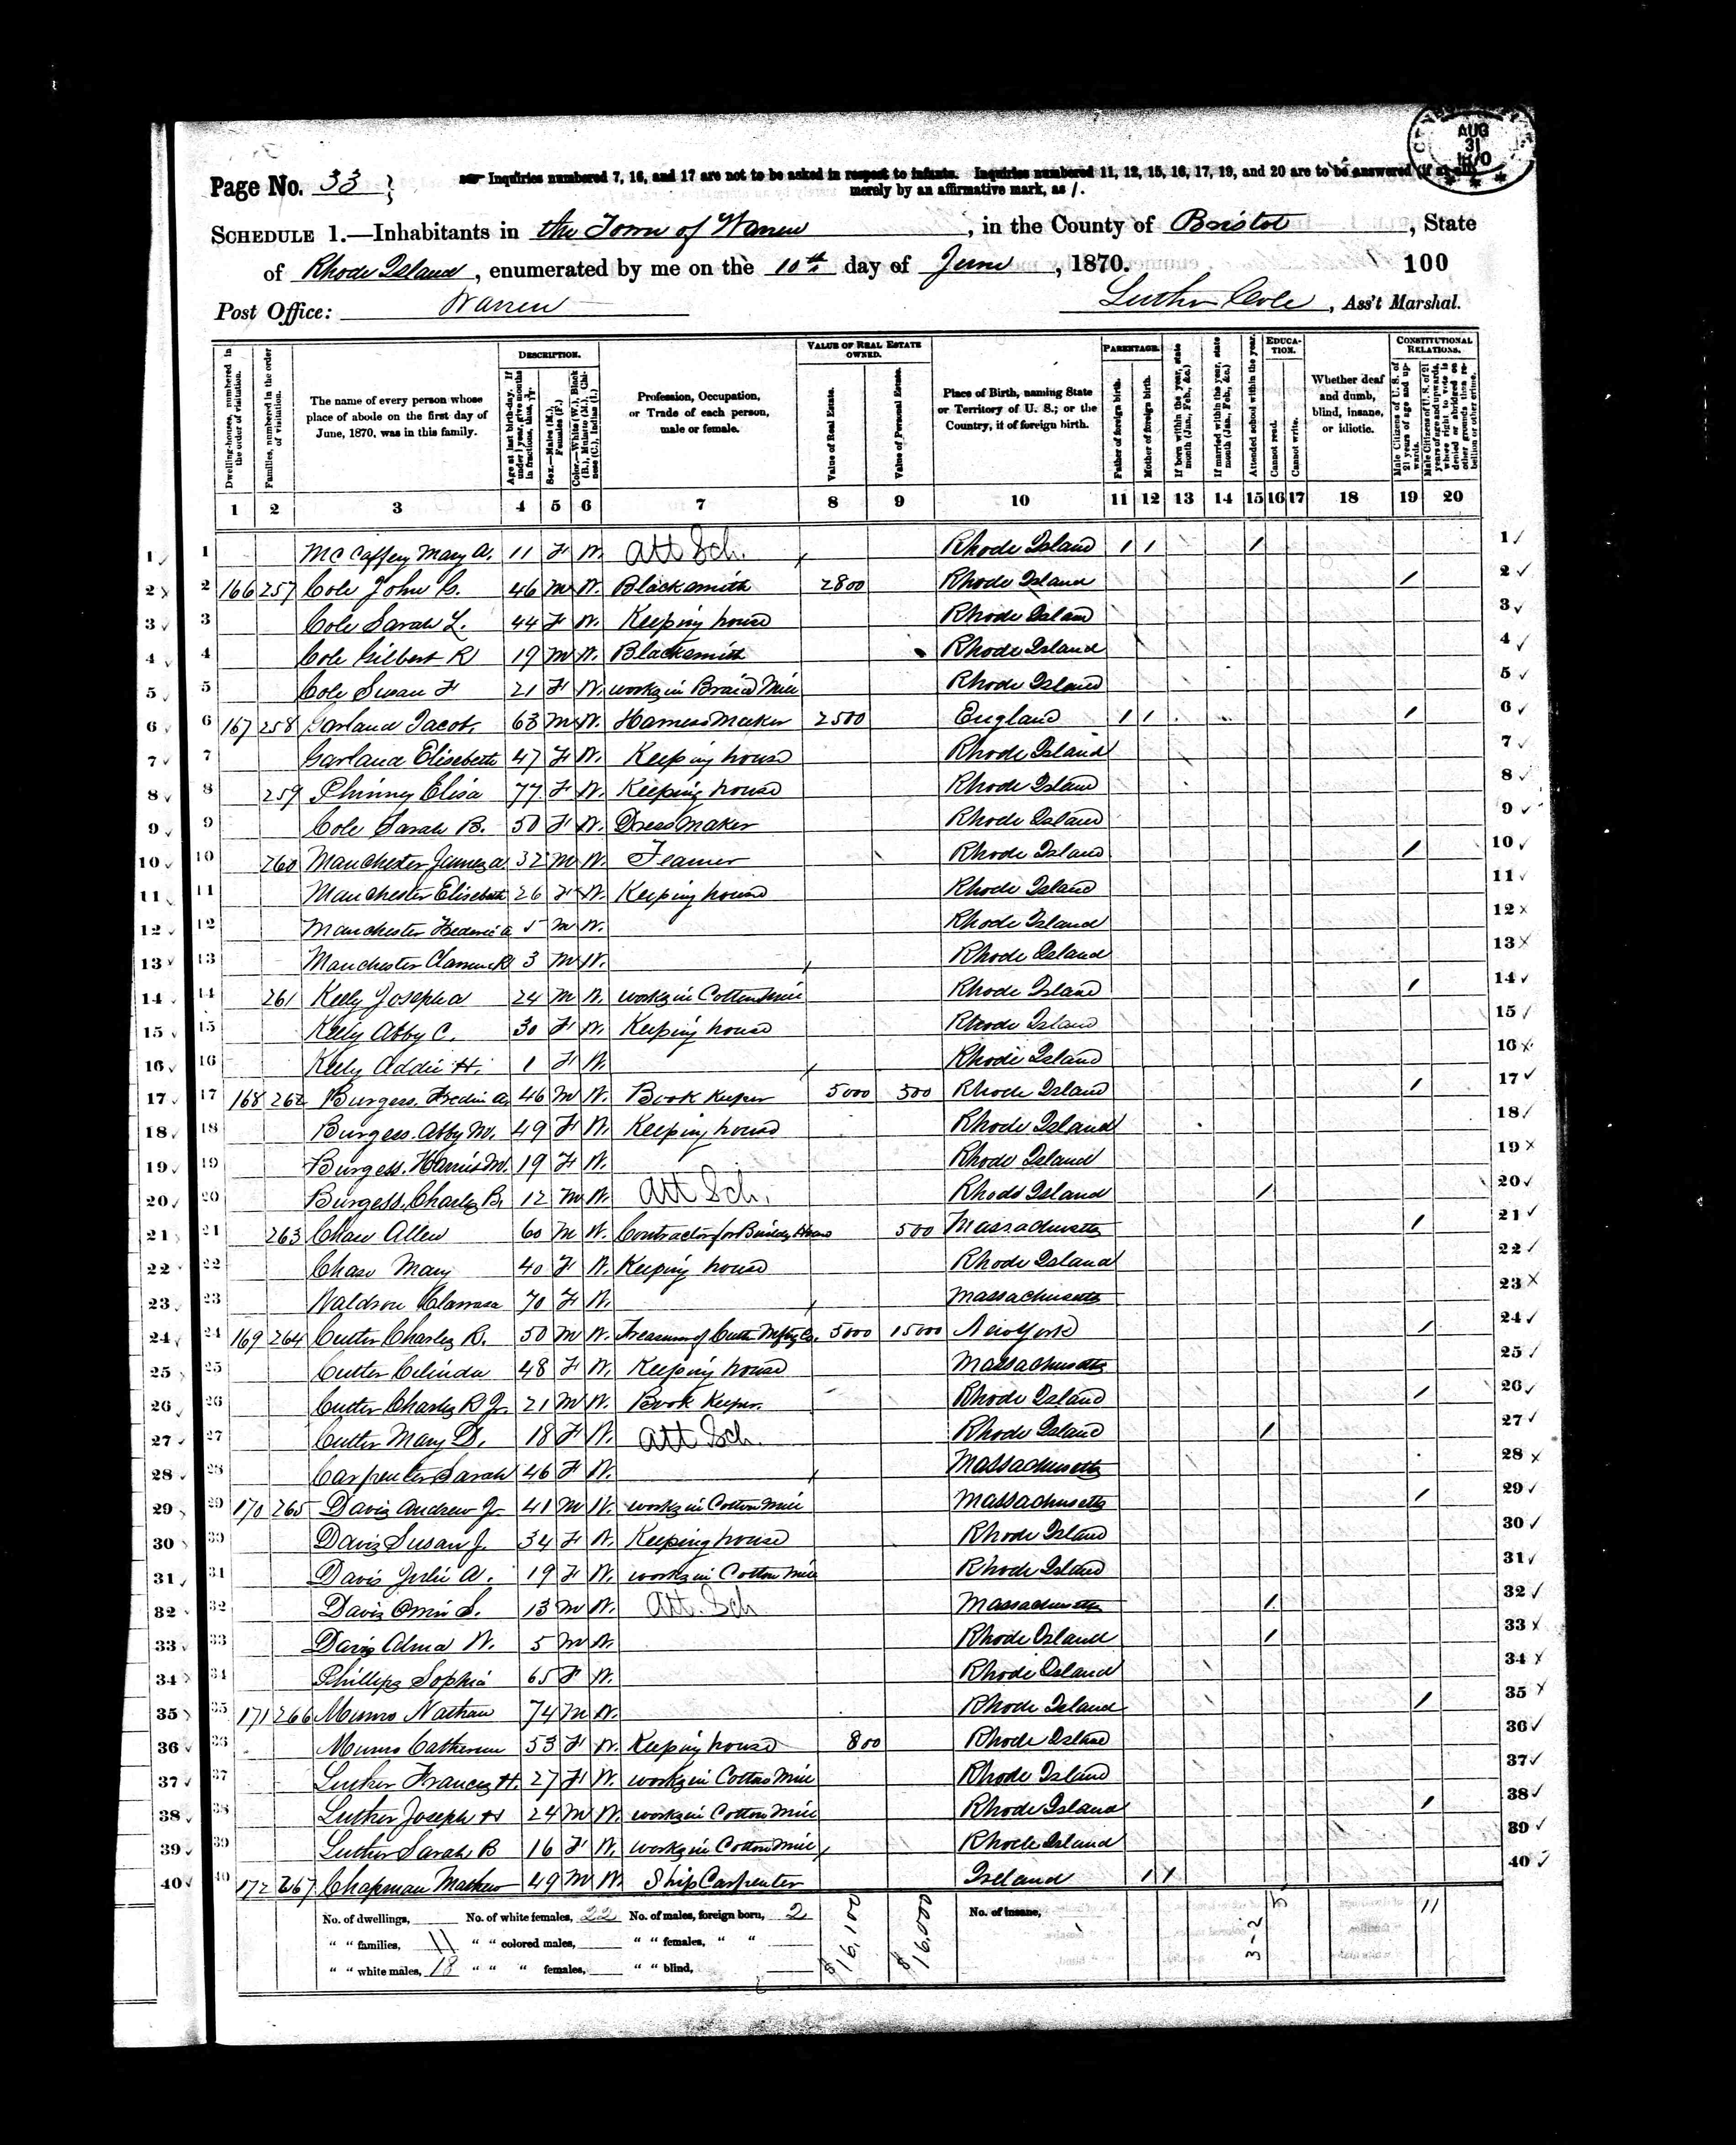 AUG 31 1870
Page No. 33
Inquiries numbered 7, 16, and 17 are not to be asked in respect to infants. Inquiries numbered 11, 12, 15, 16, 17, 19, and 20 are to be answered (if at all)
merely by an affirmative mark, as /.
SCHEDULE 1.—Inhabitants in the Town of Warren, in the County of Bristol, State
of Rhode Island, enumerated by me on the 10th day of June, 1870. 100
Post Office: Warren Luther Cole, Ass't Marshal.
Dwelling-house, numbered in the order of visitation.
Families, numbered in the order of visitation.
The name of every person whose place of abode on the first day of June, 1870, was in this family.
DESCRIPTION.
Age at last birth-day. If under 1 year, give months in fractions, thus,
Sex.—Males (M.), Females (F.)
Color.—White (W.), Black (B.), Mulatto (M.), Chinese (C.), Indian (I.)
Profession, Occupation, or Trade of each person, male or female.
VALUE OF REAL ESTATE OWNED.
Value of Real Estate.
Value of Personal Estate.
Place of Birth, naming State or Territory of U. S.; or the Country, if of foreign birth.
PARENTAGE.
Father of foreign birth.
Mother of foreign birth.
If born within the year, state month (Jan., Feb., &c.)
If married within the year, state month (Jan., Feb., &c.)
Attended school within the year.
EDUCATION.
Cannot read.
Cannot write.
Whether deaf and dumb, blind, insane, or idiotic.
CONSTITUTIONAL RELATIONS.
Male Citizens of U. S. of 21 years of age and upwards.
Male Citizens of U. S. of 21 years of age and upwards, where right to vote is denied or abridged on other grounds than rebellion or other crime.
1 2 3 4 5 6 7 8 9 10 11 12 13 14 15 16 17 18 19 20
1 1 McCaffery Mary A. 11 F W. Att Sch. Rhode Island / / / 1
2 2 166 257 Cole John G. 46 M W. Blacksmith 2800 Rhode Island / 2
3 3 Cole Sarah L. 44 F W. Keeping house Rhode Island 3
4 4 Cole Gilbert R 19 M W. Blacksmith Rhode Island 4
5 5 Cole Susan F 21 F W. works in Braid Mill Rhode Island 5
6 6 167 258 Garland Jacob 63 M W. Harness Maker 2500 England / / / 6
7 7 Garland Elisebeth 47 F W. Keeping house Rhode Island 7
8 8 259 Phinney Elisa 77 F W. Keeping house Rhode Island 8
9 9 Cole Sarah B. 50 F W. Dress Maker Rhode Island 9
10 10 260 Manchester James A 32 M W. Teamer Rhode Island / 10
11 11 Manchester Elisebeth 26 F W. Keeping house Rhode Island 11
12 12 Manchester Frederic A 5 M W. Rhode Island 12
13 13 Manchester 3 M W. Rhode Island 13
14 14 261 Keely Joseph A 24 M W. works in Cotton Mill Rhode Island / 14
15 15 Keely Abby C. 30 F W. Keeping house Rhode Island 15
16 16 Keely Addie H. 1 F W. Rhode Island 16
17 17 168 262 Burgess. 46 M W. Book Keeper 5000 500 Rhode Island / 17
18 18 Burgess. Abby M. 49 F W. Keeping house Rhode Island 18
19 19 Burgess. 19 F W. Rhode Island 19
20 20 Burgess. Charles B. 12 M W. Att Sch. Rhode Island / 20
21 21 263 Chase Allen 60 M W. Contractor for Building 500 Massachusetts / 21
22 22 Chase Mary 40 F W. Keeping house Rhode Island 22
23 23 Waldron 70 F W. Massachusetts 23
24 24 169 264 Cutter Charles R. 50 M W. Treasurer of Cutter Mfg Co. 5000 15000 New York / 24
25 25 Cutter Celinda 48 F W. Keeping house Massachusetts 25
26 26 Cutter Charles R Jr. 21 M W. Book Keeper. Rhode Island / 26
27 27 Cutter Mary D. 18 F W. Att Sch. Rhode Island / 27
28 28 Carpenter Sarah 46 F W. Massachusetts 28
29 29 170 265 Davis Andrew J. 41 M W. works in Cotton Mill Massachusetts / 29
30 30 Davis Susan J. 34 F W. Keeping house Rhode Island 30
31 31 Davis Julie A. 19 F W. works in Cotton Mill Rhode Island 31
32 32 Davis Orrin S. 13 M W. Att. Sch Massachusetts / 32
33 33 Davis W. 5 M W. Rhode Island / 33
34 34 Phillips Sophia 65 F W. Rhode Island 34
35 35 171 266 Munro Nathan 74 M W. Rhode Island / 35
36 36 Munro Catherine 53 F W. Keeping house 800 Rhode Island 36
37 37 Luther Frances H. 27 F W. works in Cotton Mill Rhode Island 37
38 38 Luther Joseph H 24 M W. works in Cotton Mill Rhode Island / 38
39 39 Luther Sarah B 16 F W. works in Cotton Mill Rhode Island 39
40 40 172 267 Chapman Mathew 49 M W. Ship Carpenter Ireland / / 40
No. of dwellings, No. of white females, 22 No. of males, foreign born, 2 $16,100 $16,000 No. of insane, 3-2 5 11
" " families, 11 " " colored males, " " females, " "
" " white males, 18 " " " females, " " blind,